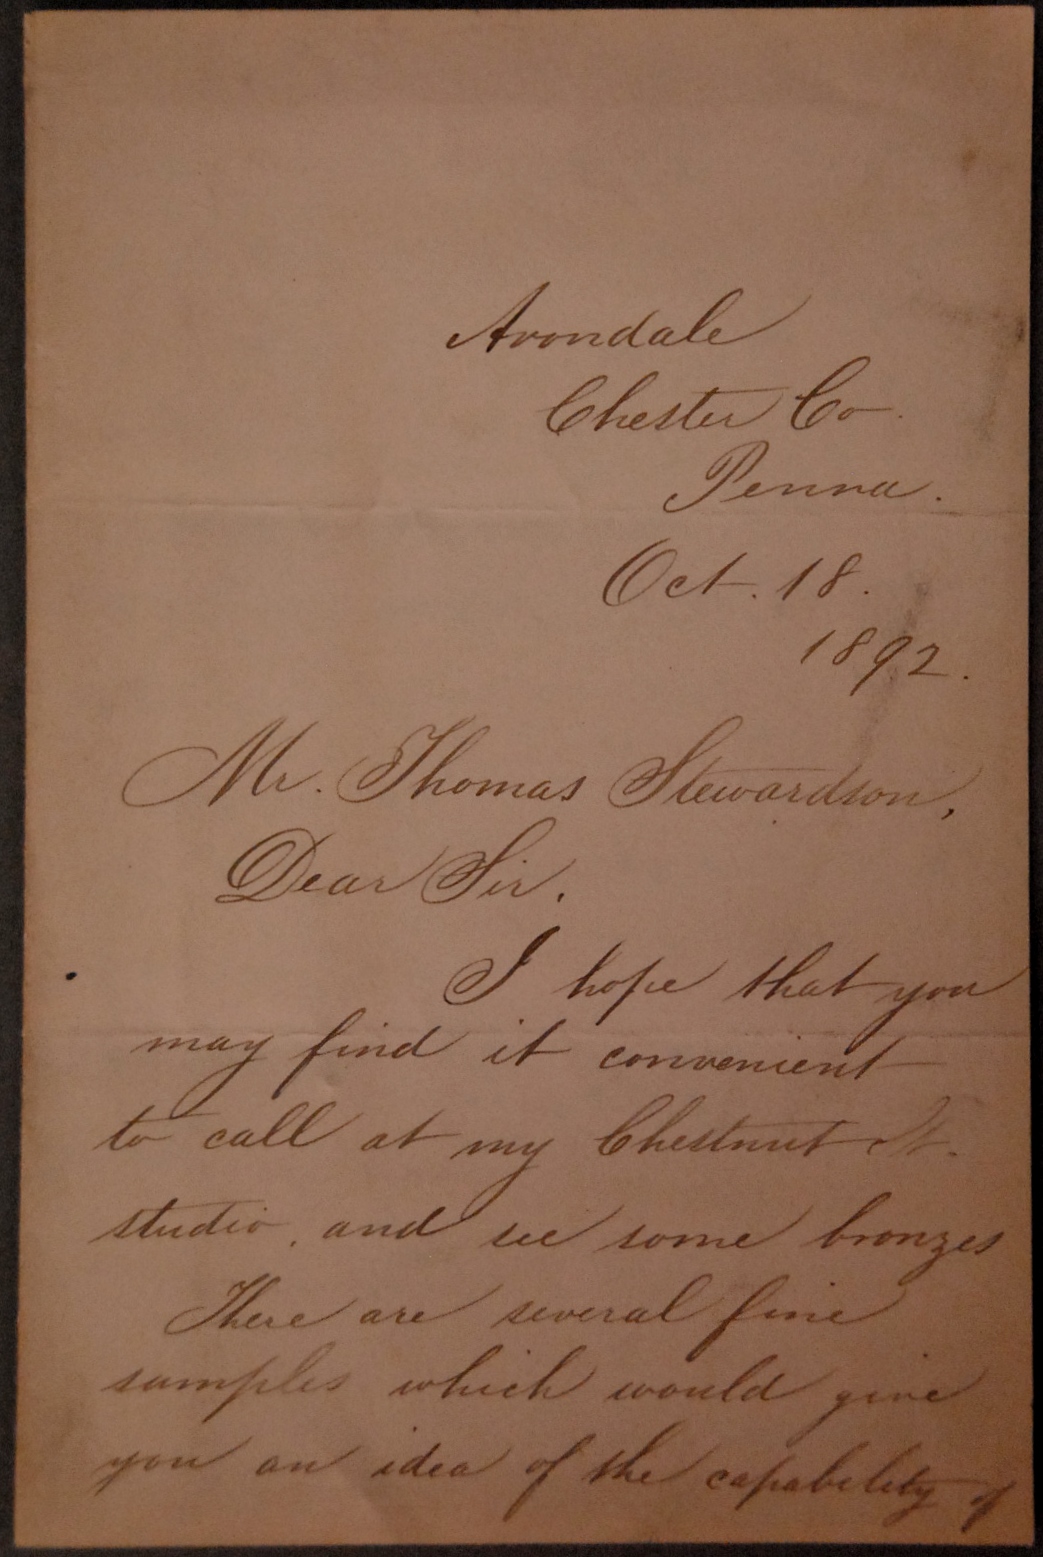 Avondale
Chester Co.
Penna.
Oct. 18.
1892.
Mr. Thomas Stewardson,
Dear Sir.
I hope that you
may find it convenient
to call at my Chestnut St.
studio, and see some bronzes
There are several fine
samples which would give
you an idea of the capability of